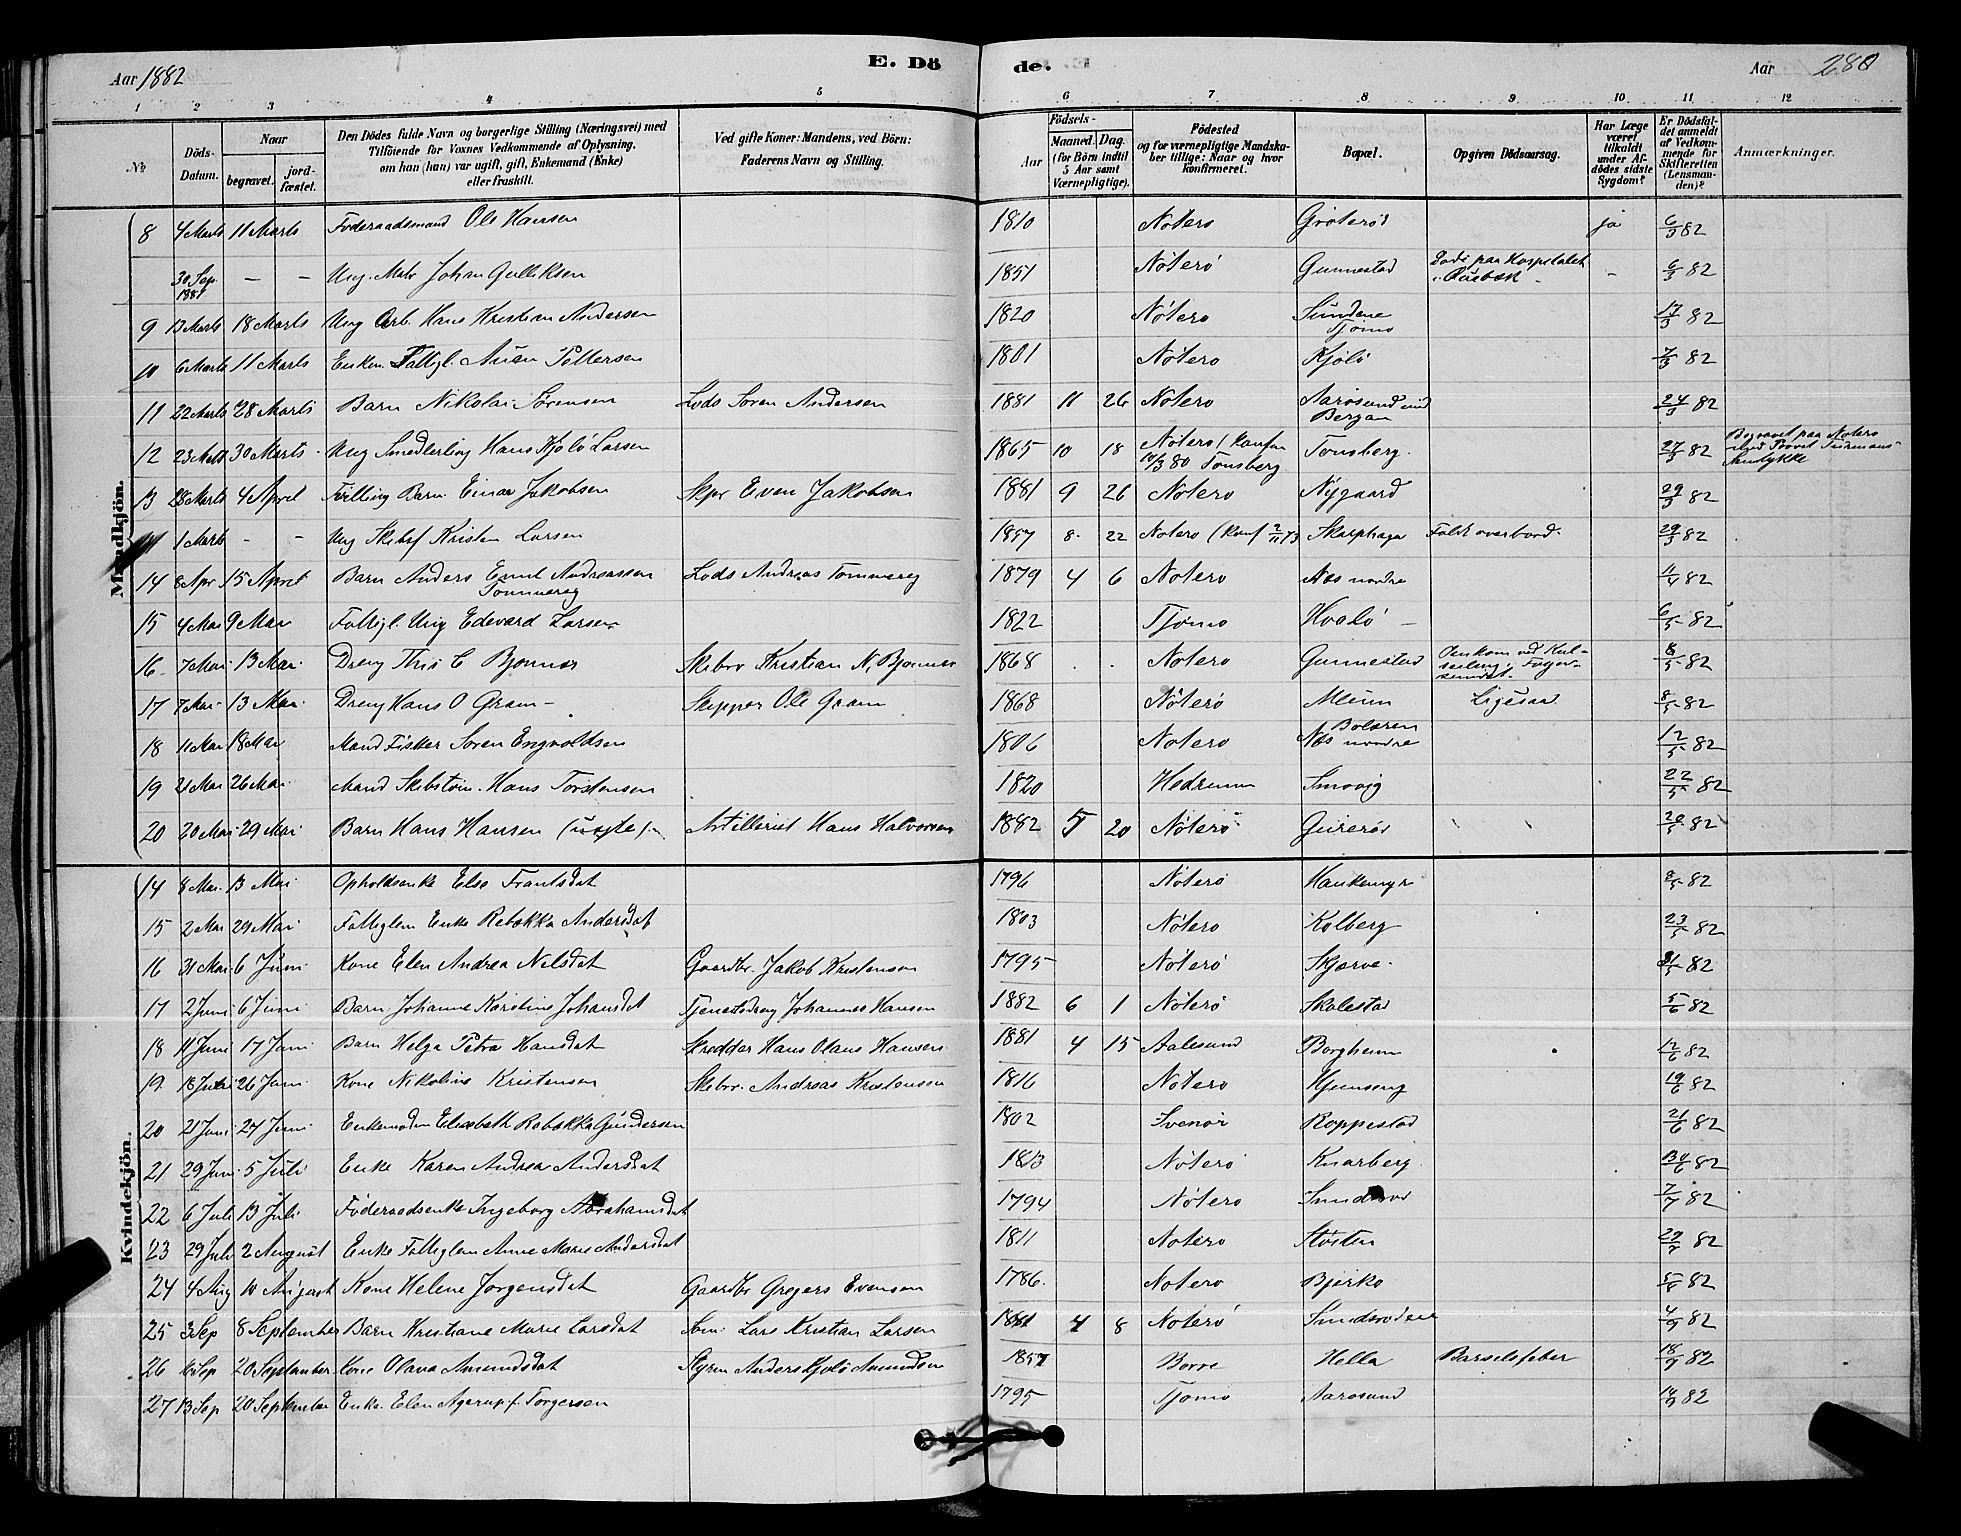 Aar 1882
E. Dö
de.
Aar 280
1 2 3 4 5 6 7 8 9 10 11 12
No
Döds-Datum.
Naar
begravet.
jordfæstet.
Den Dödes fulde Navn og borgerlige Stilling (Næringsvei) med
Tilföiende for Voxnes Vedkommende af Oplysning,
om han (hun) var ugift, gift, Enkemand (Enke)
eller fraskilt.
Ved gifte Koner: Mandens, ved Börn:
Faderens Navn og Stilling.
Födsels-
Aar
Maaned.
Dag.
(for Börn indtil
5 Aar samt
Værnepligtige).
Födested
og for værnepligtige Mandskaber tillige: Naar og hvor
konfirmeret.
Bopæl.
Opgiven Dödsaarsag.
Har Læge
været
tilkaldt
under Afdödes sidste
Sygdom?
Er Dödsfaldet anmeldt
af Vedkommende for
Skifteretten
(Lensmanden)?
Anmærkninger.
Mandkjön.
8 4 Marts 11 Marts Föderaadsmand Ole Hansen 1810 Nöterö Gröteröd ja 6/3 82
30 Sep 1881 - - Ung. Matr Johan Gulliksen 1851 Nöterö Gunnestad Döde paa Hospitalet - 6/3 82
9 13 Marts 18 Marts Ung Arb. Hans Kristian Andersen 1820 Nöterö Sundene Tjömö 17/3 82
10 6 Marts 11 Marts Enkem. Fattigl. Anen Pettersen 1801 Nöterö Kjölö 7/3 82
11 22 Marts 28 Marts Barn Nikolai Sörensen Lods Sören Andersen 1881 11 26 Nöterö Aarösund Bergan 24/3 82
12 23 Marts 30 Marts Ung Smedlærling Hans Kjölö Larsen 1865 10 18 Nöterö (Konfr 80 Tönsberg Tönsberg. 27/3 82 Begravet paa Nöterö
13 28 Marts 4 April Tvilling Barn Einar Jakobsen Skpr Even Jakobsen 1881 9 26 Nöterö Nygaard 29/3 82
1 Marts - - Ung Skibsf Kristen Larsen 1857 8 22 Nöterö (Konf 2/11 73 Skarphaga Faldt overbord. 29/3 82
14 8 Apr 15 April Barn Anders Emil Andreassen Tommereg Lods Andreas Tommereg 1879 4 6 Nöterö Næs nordre 11/4 82
15 4 Mai 9 Mai Fattigl. Ung Edevard Larsen 1822 Tjömö Hvalö - 6/5 82
16 7 Mai 13 Mai Dreng Thrs C Bjönnes Skibrv Kristian N. Bjönnes 1868 Nöterö Gunnestad Omkom ved Kulseiling i 8/5 82
17 7 Mai 13 Mai Dreng Hans O Gram - Skipper Ole Gram 1868 Nöterö Meum Ligesaa 8/5 82
18 11 Mai 18 Mai Mand Fisker Sören Engvoldsen 1806 Nöterö Bolæren Næs nordre 12/5 82
19 21 Mai 26 Mai Mand Skibstöm. Hans Torstensen 1820 Hedrum Smovig 22/5 82
20 20 Mai 29 Mai Barn Hans Hansen (uægte) Artillerist Hans Halvorsen 1882 5 20 Nöterö Gireröd 20/5 82
Kvindekjön.
14 8 Mai 13 Mai Opholdsenke Else Frantsdat 1796 Nöterö Haukemyr 8/5 82
15 2 Mai 29 Mai Fattiglem Enke Rebekka Andersdat 1803 Nöterö Kolberg 23/5 82
16 31 Mai 6 Juni Kone Elen Andrea Nilsdat Gaardbr. Jakob Kristensen 1795 Nöterö Skjærve 31/5 82
17 2 Juni 6 Juni Barn Johanne Karstine Johansdat Tjenestedreng Johannes Hansen 1882 6 1 Nöterö Skalestad 5/6 82
18 11 Juni 17 Juni Barn Helga Petra Hansdat Skredder Hans Olaus Hansen 1881 4 15 Aalesund Borgheim 12/6 82
19. 18 Juni 26 Juni Kone Nikoline Kristensen Skibsr. Andreas Kristensen 1816 Nöterö Hjemseng 19/6 82
20 21 Juni 24 Juni Enkemadm Elisabeth Rebekka Gundersen 1802 Svenör Roppestad 21/6 82
21 29 Juni 5 Juli Enke Karen Andrea Andersdat 1813 Nöterö Knarberg 30/6 82
22 6 Juli 13 Juli Föderaadsenke Ingeborg Abrahamsdat 1794 Nöterö Smidsröd 7/7 82
23 29 Juli 2 August Enke Fattiglem Anne Marie Andersdat 1811 Nöterö Hösten 29/7 82
24 4 Aug 10 August Kone Helene Jörgensdat Gaardbr Gregers Evensen 1786. Nöterö Bjerkö 5/8 82
25 3 Sep 8 September Barn Kristiane Marie Larsdat Lars Kristian Larsen 1881 4 8 Nöterö Smidsrödeie 4/9 82
26 16 Sep 20 September Kone Olava Amundsdat Styrm Anders Kjölö Amundsen 1857 Borre Hella Barselsfeber 18/9 82
27 13 Sep 20 September Enke. Elen Agerup f. Torgersen 1795 Tjömö Aarösund 14/9 82